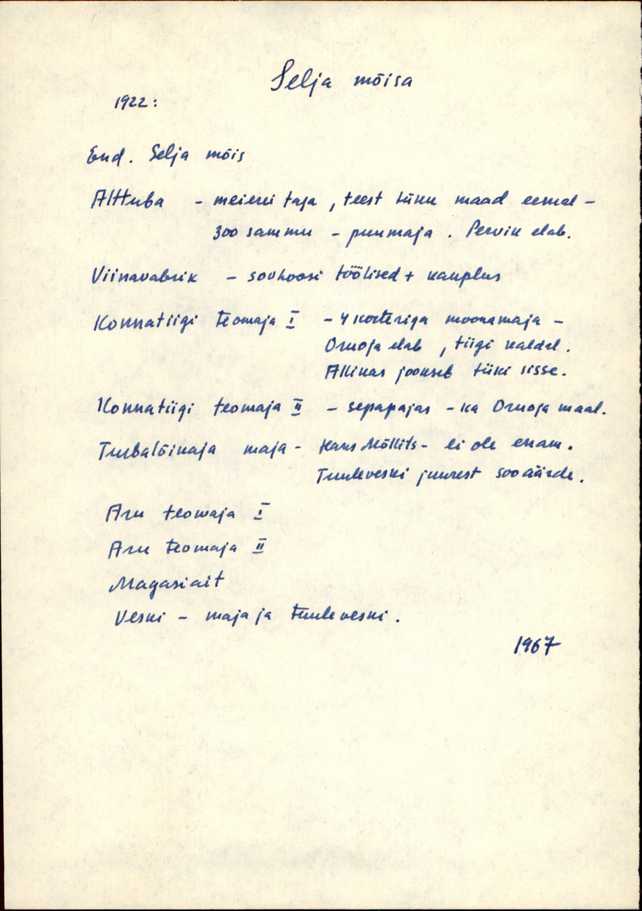 Selja mõisa
1922:
End. Selja mõis
Alttuba - meierei taga, teest tükk maad eemal -
300 sammu - puumaja. Pervik elab.
Viinavabrik - sovhoosi töölised + kauplus
Konnatiigi teomaja I - 4 korteriga moonamaja -
Oruoja elab, tiigi kaldal.
Allikas jookseb tiiki sisse.
Konnatiigi teomaja II - sepapajas - ka Oruoja maal.
Turbalõikaja maja - Hans Möllits - ei ole enam.
Tuuleveski juurest sooäärde.
Aru teomaja I
Aru teomaja II
Magasiait
Veski - maja ja tuuleveski.
1967